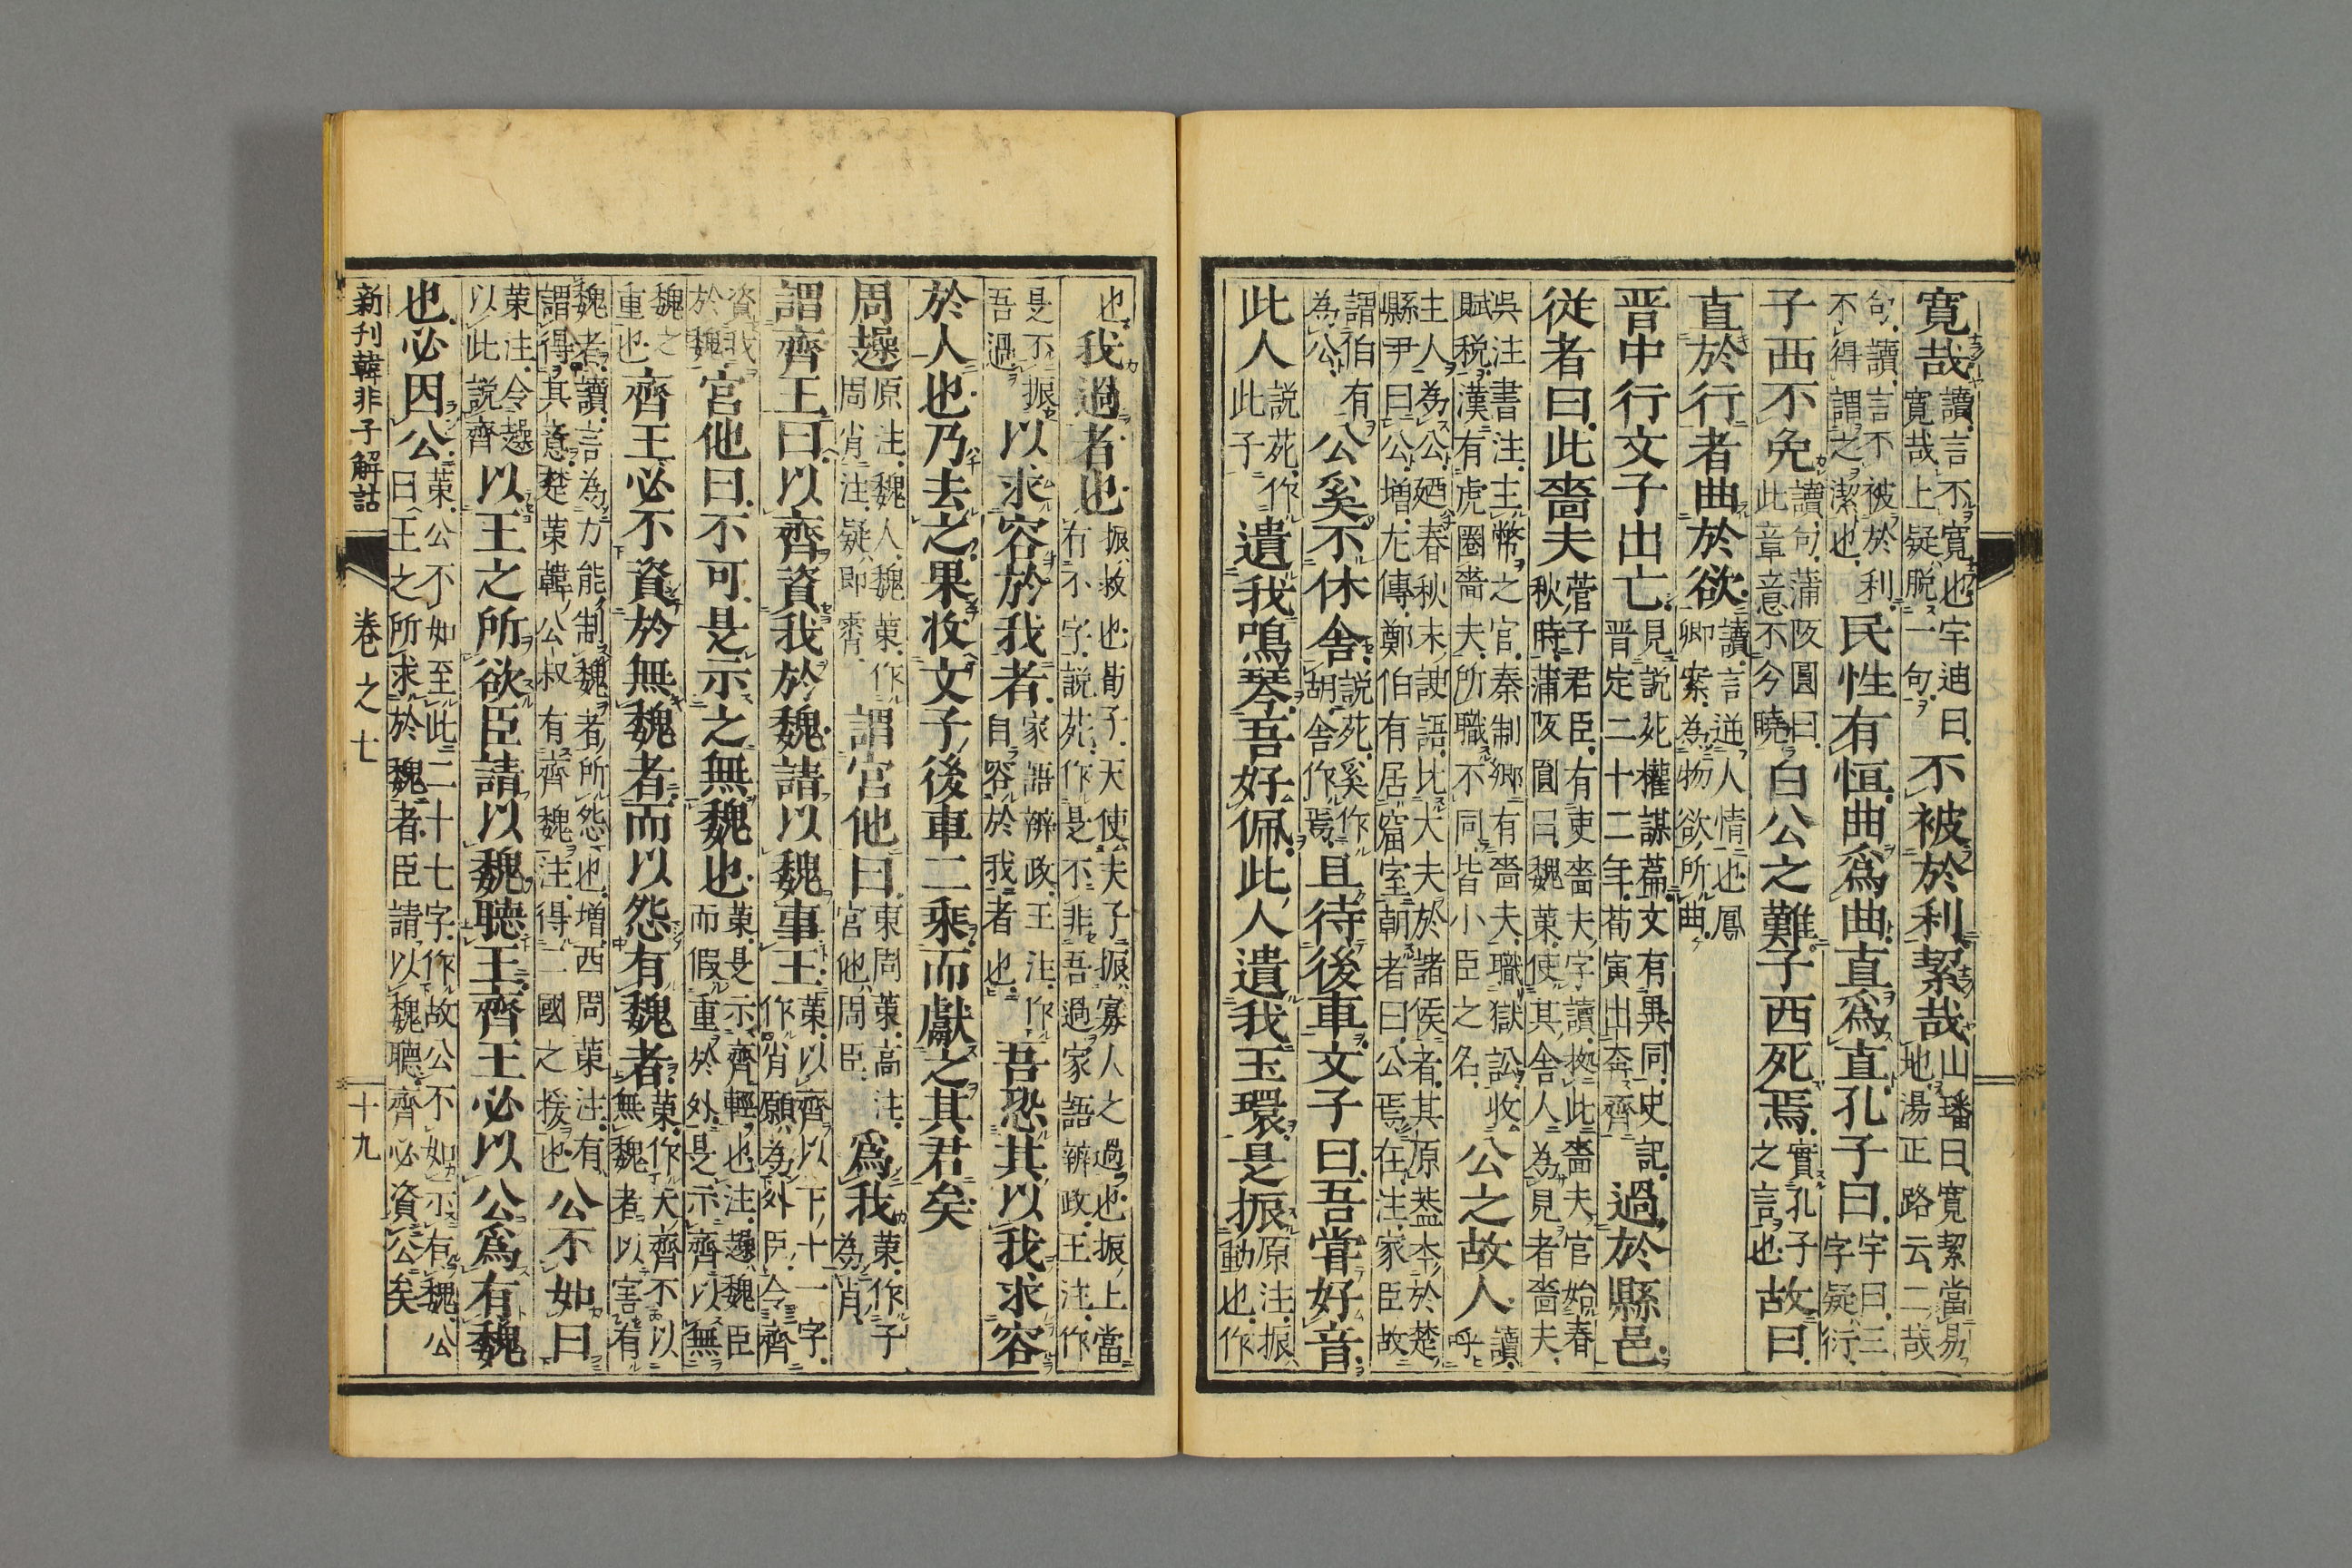 寛哉讀言不寛也宇廸曰
寛哉上疑脱一句不被於利絜哉山璠曰寛絜當易
地湯正路云二哉
句讀言不被於利
不得謂之潔也民性有恒曲爲曲直爲直孔子曰宇曰三
字疑衍
子西不免讀句蒲阪圓曰
此章意不今曉白公之難子西死焉實孔子
之言也故曰
直於行者曲於欲讀言逆人情也鳳
卿案為物欲所曲
晋中行文子出亡見説苑權謀篇文有異同史記
晋定二十二年荀寅出奔齊過於縣邑
従者曰此嗇夫菅子君臣有吏嗇夫字讀拠此嗇夫官始春
秋時蒲阪圓曰魏策使其舎人為見者嗇夫
呉注書注主幣之官秦制郷有嗇夫職獄訟收
賦税漢有虎圈嗇夫所職不同皆小臣之名公之故人讀
呼
主人為公廼春秋末諛語比大夫於諸侯者其原葢夲於楚
縣尹曰公増左傳鄭伯有居窟室朝者曰公焉在注家臣故
謂伯有
為公公奚不休舎説苑奚作
胡舎作焉且待後車文子曰吾嘗好音
此人説苑作
此子遺我鳴琴吾好佩此人遺我玉環是振原注振
動也作
也我過者也振救也荀子天使夫子振寡人之過也振上當
有不字説苑作是不非吾過家語辨政王注作
是不振
吾過以求容於我者家語辨政王注作
自容於我者也吾恐其以我求容
於人也乃去之果收文子後車二乘而獻之其君矣
周趮原注魏人魏策作
周肖注疑即霄謂宮他曰東周策高注
宮他周臣爲我策作子
為肖
謂齊王曰以齊資我於魏請以魏事王策以齊以下十一字
作肖願為外臣令齊
資我
於魏宮他曰不可是示之無魏也策是示齊輕也注趮魏臣
而假重於外是示齊以無
魏之
重也齊王必不資於無魏者而以怨有魏者策作夫齊不以
無魏者以害有
魏者讀言為力能制魏者所怨也増西周策注有
謂得其意楚策韓公叔有齊魏注得二國之援也公不如曰
策注令趮
以此説齊以王之所欲臣請以魏聽王齊王必以公爲有魏
也必因公策公不如至此二十七字作故公不如示有魏公
曰王之所求於魏者臣請以魏聽齊必資公矣
新刊韓非子解詁　卷之七　十九